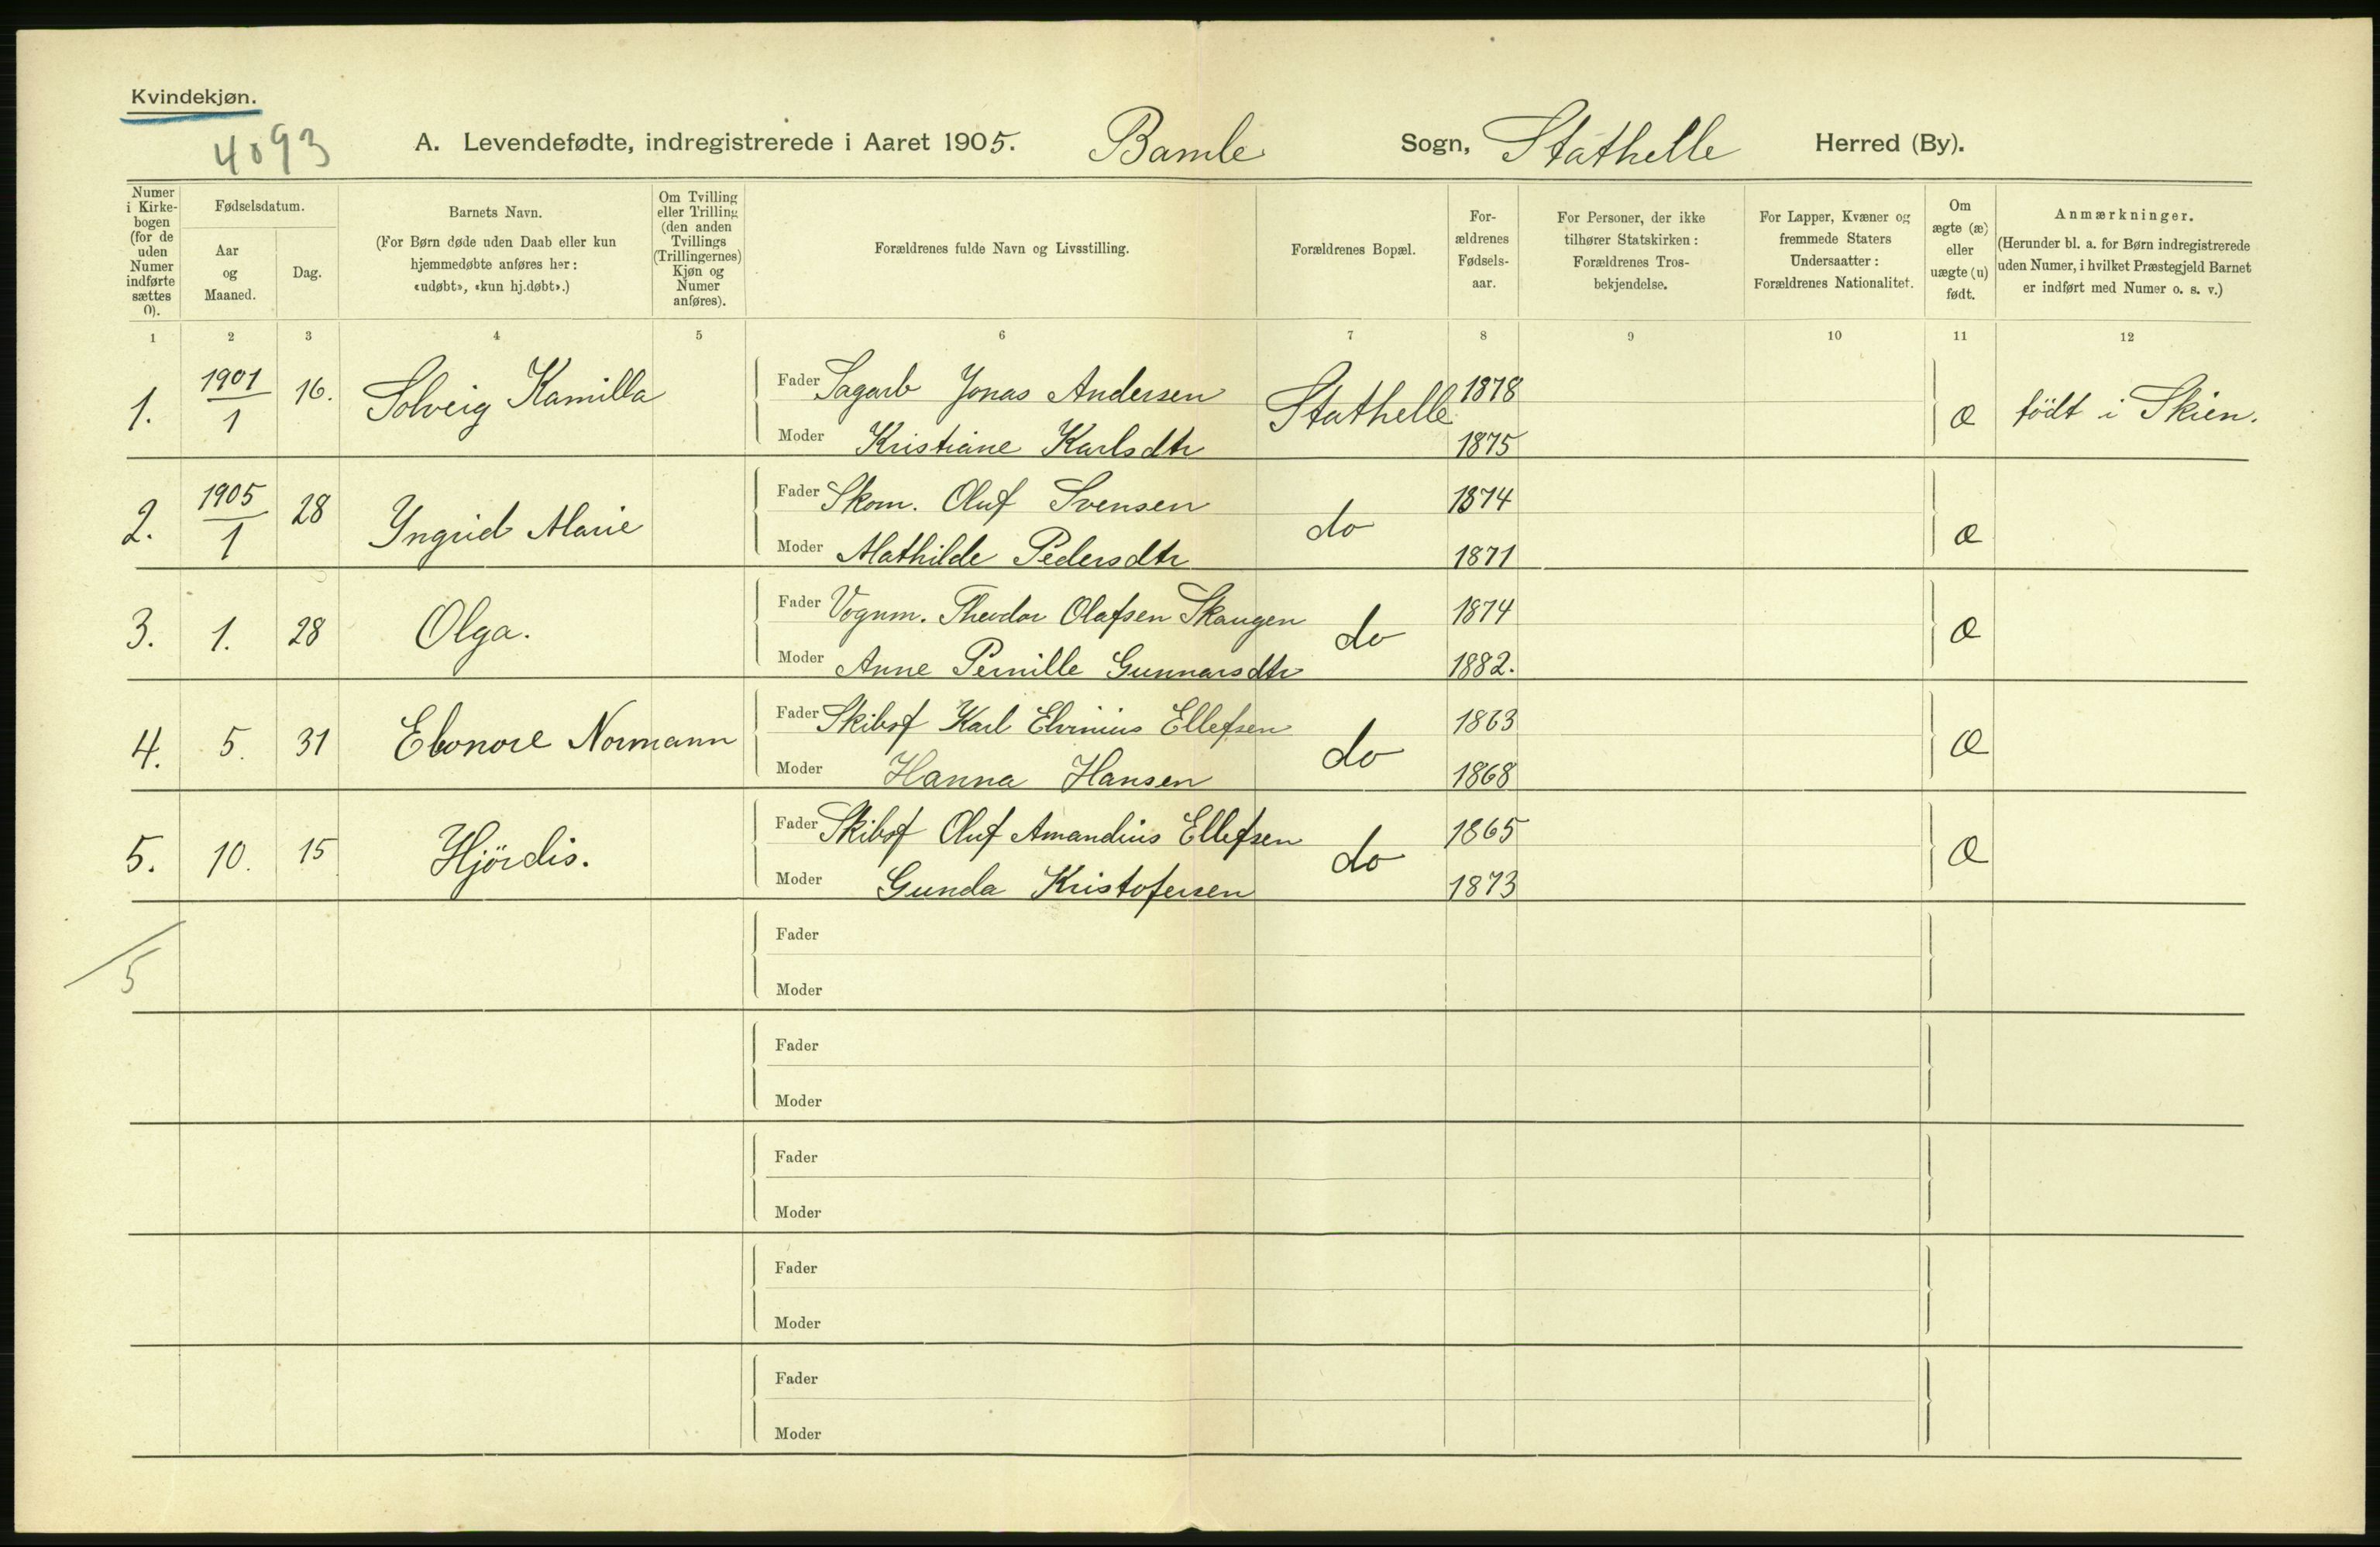 Kvindekjøn.
4093
A. Levendefødte, indregistrerede i Aaret 1905. Bamle Sogn, Stathelle Herred (By).
Numer i Kirkebogen (for de uden Numer indførte sættes 0).
Fødselsdatum.
Aar og Maaned.
Dag.
Barnets Navn.
(For Børn døde uden Daab eller kun hjemmedøbte anføres her: «udøbt», «kun hj.døbt».)
Om Tvilling eller Trilling (den anden Tvillings (Trillingernes) Kjøn og Numer anføres).
Forældrenes fulde Navn og Livsstilling.
Forældrenes Bopæl.
For-ældrenes Fødsels-aar.
For Personer, der ikke tilhører Statskirken: Forældrenes Tros-bekjendelse.
For Lapper, Kvæner og fremmede Staters Undersaatter: Forældrenes Nationalitet.
Om ægte (æ) eller uægte (u) født.
Anmærkninger.
(Herunder bl. a. for Børn indregistrerede uden Numer, i hvilket Præstegjeld Barnet er indført med Numer o. s. v.)
1 2 3 4 5 6 7 8 9 10 11 12
1. 1901/1 16. Solveig Kamilla Fader Sagarb Jonas Andersen Stathelle 1878 æ født i Skien.
Moder Kristiane Karlsdtr 1875
2. 1905/1 28 Yngrid Marie Fader Skom. Oluf Svensen do 1874 æ
Moder Mathilde Pedersdtr 1871
3. 1. 28 Olga. Fader Vognm. Theodor Olafsen Skaugen do 1874 æ
Moder Anne Pernille Gunnarsdtr 1882.
4. 5. 31 Elonore Normann Fader Skibsf Karl Elvinius Ellefsen do 1863 æ
Moder Hanna Hansen 1868
5. 10. 15 Hjördis. Fader Skibsf Oluf Amandius Ellefsen do 1865 æ
Moder Gunda Kristofersen 1873
5
Fader
Moder
Fader
Moder
Fader
Moder
Fader
Moder
Fader
Moder